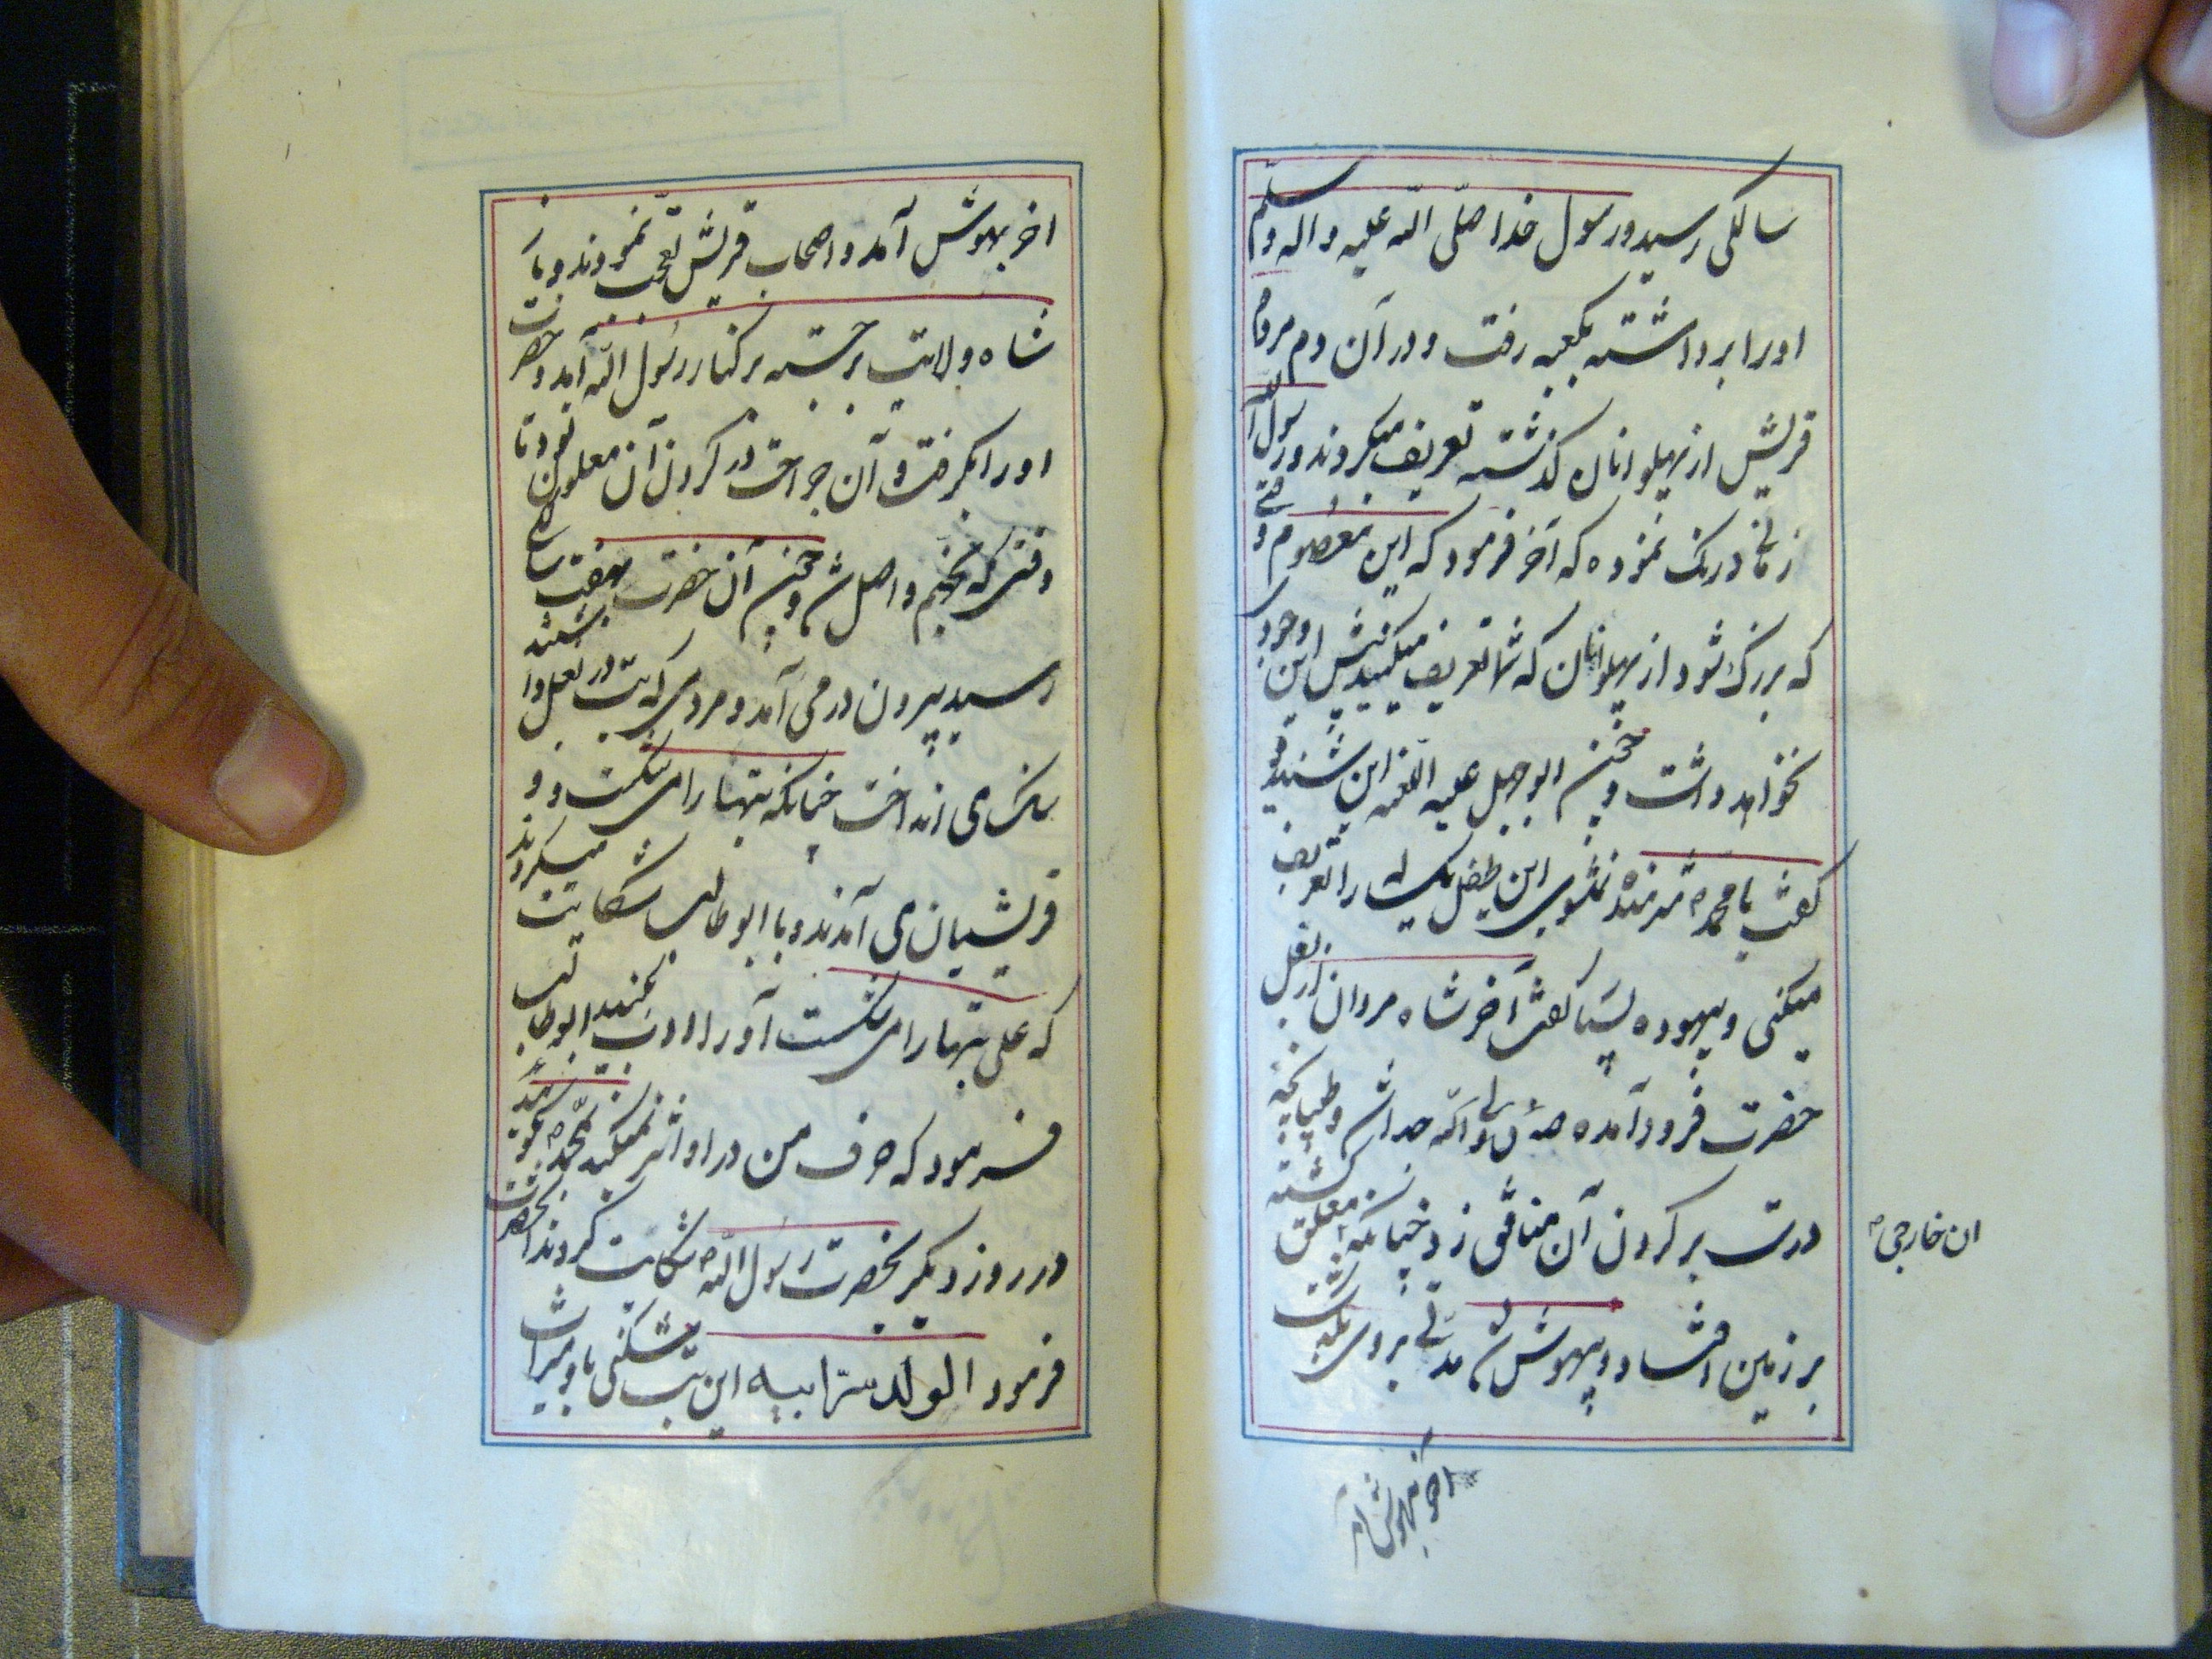 سالکی رسید و رسول خدا صلی الله علیه و اله و سلم
اورا برداشته بکعبه رفت و در آن دم مردم
قریش از پهلوانان گذشته تعریف میکردند و رسول
زمانی درنگ نموده که آخر فرمود که این معصوم وقتی
که بزرگ شود از پهلوانان که شما تعریف میکنید پیش این وجودی
نخواهد داشت و چون ابوجهل علیه اللعنه این شنید
گفت یا محمد شرمنده نمیشوی این طفل یکساله را تعریف
میکنی و بیهوده بسیا گفت آخر شاه مردان از بغل
حضرت فرود آمده و طپانچه
درت بر کردن آن منافق زد چنانکه معلق گشته
ان خارجی
بر زمین افتاد و بیهوش شد مدتی بروی
آخر بهوش آمد
اخر بهوش آمد و اصحاب قریش تعجب نمودند و باز
شاه ولایت برجسته بر کنار رسول الله آمد و حضرت
اورا بگرفت و آن جراحت در کردن آن معلون بود تا
وقتی که بجهنم واصل شد و چون آن حضرت بهفت سالگی
رسید بیرون در می آمد و مردمی که بت در بغل داشتند
سنک می انداخت چنانکه بتهارا می شکست و
قریشیان می آمدند و با ابوطالب شکایت میکردند
که علی بتهارا می شکست آورا ادب نمیکنید ابوطالب
فرمود که حرف من در او اثر نمیکند بمحمد بگوئید
در روز دیگر بحضرت رسول الله شکایت کردند آنحضرت
فرمود الولد سرابیه این بت شکنی باو میراث